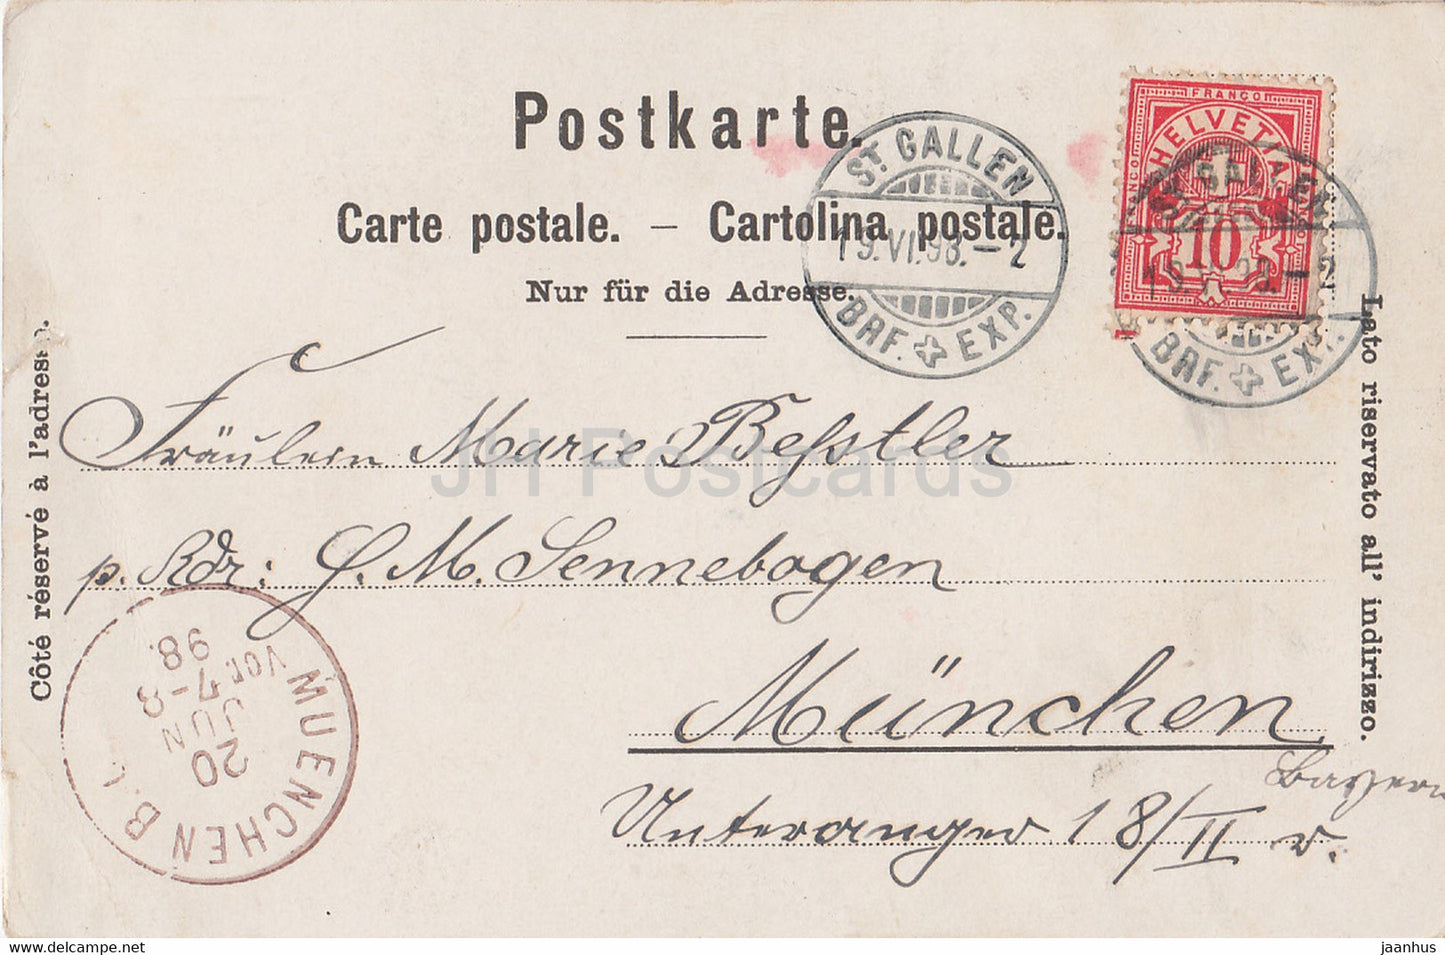 Postkarte.
Carte postale. – Cartolina postale.
Nur für die Adresse.
Côté réservé à l'adresse.
Lato riservato all' indirizzo.
FRANCO
HELVETIA
10
ST. GALLEN
19.VI.98.–2
BRF. EXP.
ST. GALLEN
19.VI.98.–2
BRF. EXP.
Fräulein Marie Beßtler
p. Adr: G. M. Sennebogen
München
Bayern
Unteranger 18/II r.
MUENCHEN B.
20
JUN
7-8
Vor.
98.
JH Postcards
jaanhus - www.delcampe.net